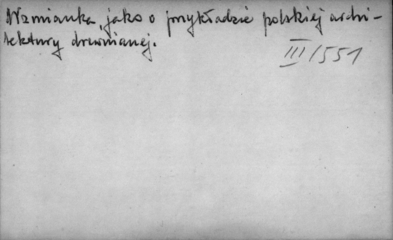 Wzmianka, jako o przykładzie polskiej archi-
tektury drewnianej.
III/551